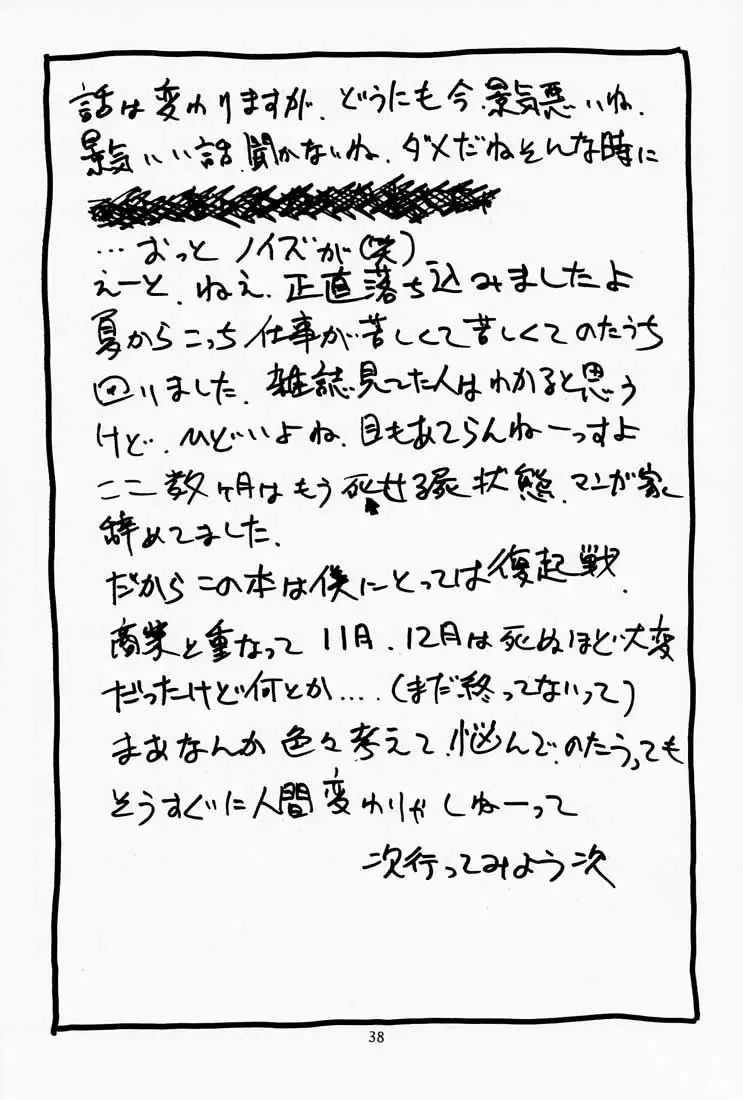 話は変わりますが、どうにも今、景気悪いね、
景気いい話、聞かないね、ダメだねそんな時に
…おっと ノイズが(笑)
えーと、ねえ、正直落ち込みましたよ
夏からこっち仕事が苦しくて苦しくてのたうち
回りました、雑誌見てた人はわかると思う
けど、ひどいよね、目もあてらんねーっすよ
ここ数ヶ月はもう死せる屍状態、マンガ家
辞めてました、
だからこの本は僕にとっては復起戦、
商業と重なって 11月、12月は死ぬほど大変
だったけど何とか…、(まだ終ってないって)
まあなんか色々考えて、悩んで、のたうっても
そうすぐに人間変わりゃしねーって
次行ってみよう次
38